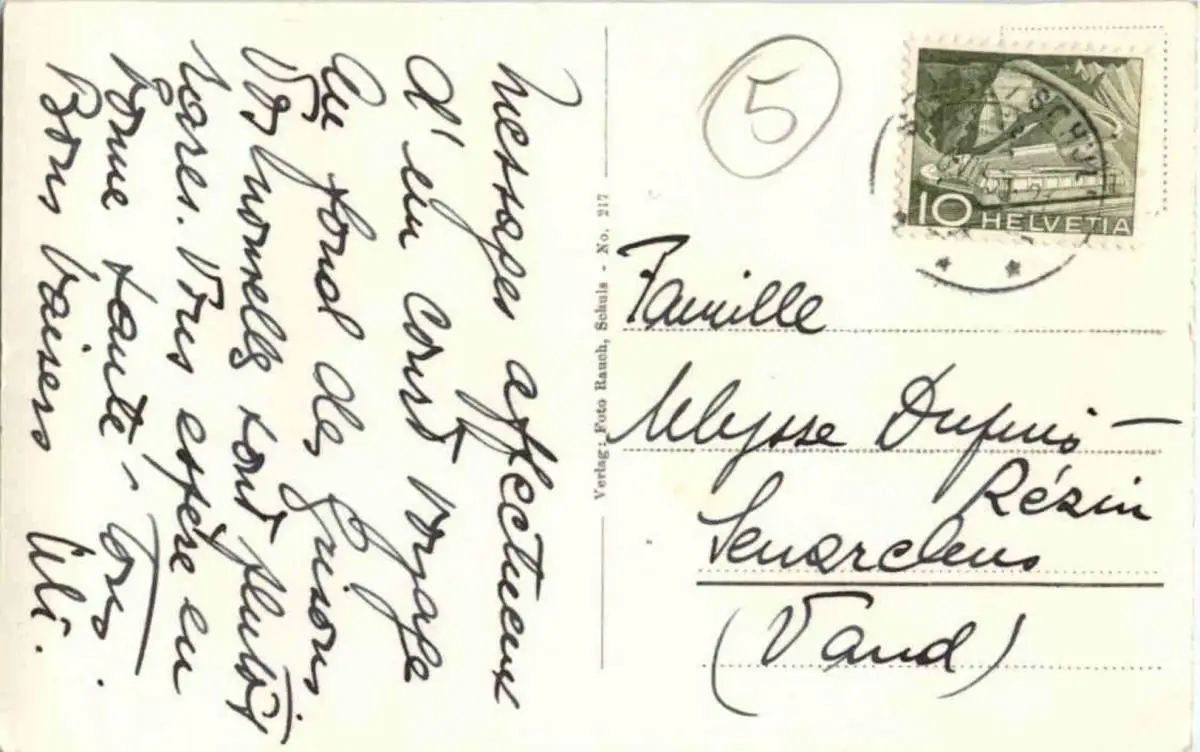 Messages affectueux
d'un court voyage
au fond des Grisons
Vos nouvelles sont plutôt
rares. Vous espère en
bonne santé - tous.
Bons baisers Uli.
Verlag: Foto Rauch, Schuls - No. 217
5
10 HELVETIA
Famille
Ulysse Dupuis-
Rézin
Senarclens
(Vaud)